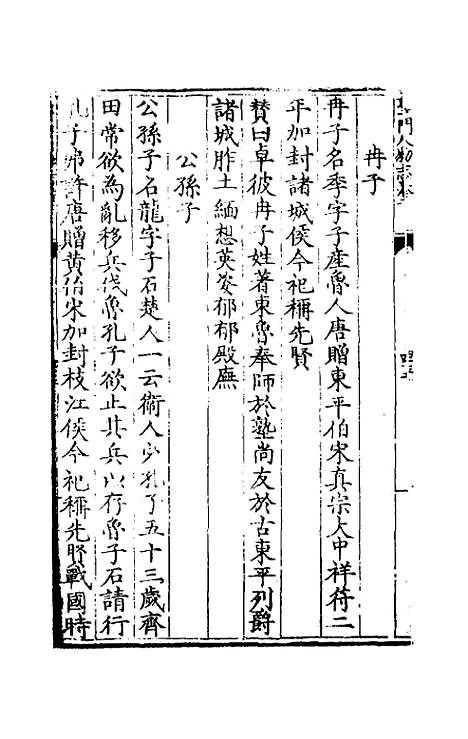 冉子
冉子名季字子產魯人唐贈東平伯宋真宗大中祥符二
年加封諸城侯今祀稱先賢
贊曰卓彼冉子姓著東魯奉師於塾尚友於古東平列爵
諸城胙土緬想英姿郁郁殿廡
公孫子
公孫子石龍字子石楚人一云衛人少孔子五十三歲齊
田常欲為亂移兵伐魯孔子欲止其兵以存魯子石請行
孔子弗許唐贈黃伯宋加封枝江侯今祀稱先賢戰國時
門人物志卷